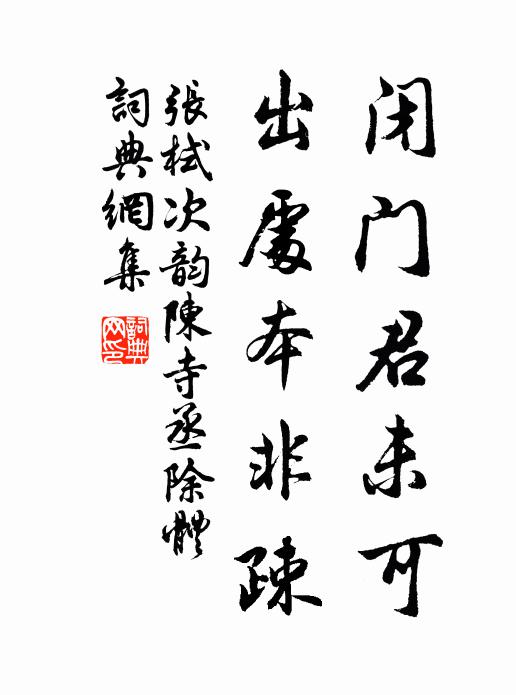 闭门君未可
出處本非疎
張栻次韵陳寺丞除體
詞典網集
詞典网印